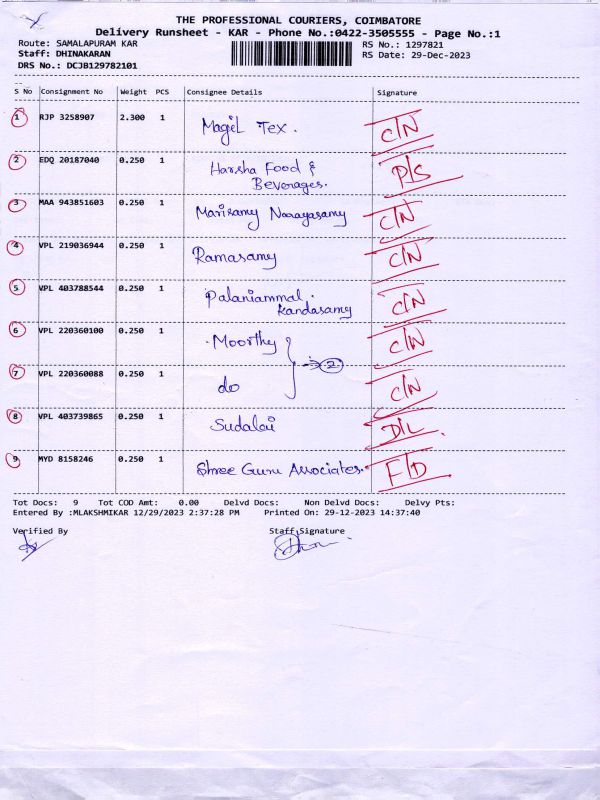 THE PROFESSIONAL COURIERS, COIMBATORE
Delivery Runsheet - KAR - Phone No.:0422-3505555 - Page No.:1
Route: SAMALAPURAM KAR RS No.: 1297821
Staff: DHINAKARAN RS Date: 29-Dec-2023
DRS No.: DCJB129782101
S No Consignment No Weight PCS Consignee Details Signature
1 RJP 3258907 2.300 1 Magil Tex. C/N
2 EDQ 20187040 0.250 1 Harsha Food & P/S
Beverages.
3 MAA 943851603 0.250 1 Marisamy Narayasamy C/N
4 VPL 219036944 0.250 1 Ramasamy C/N
5 VPL 403788544 0.250 1 Palaniammal. C/N
Kandasamy
6 VPL 220360100 0.250 1 Moorthy C/N
2
7 VPL 220360088 0.250 1 do C/N
8 VPL 403739865 0.250 1 Sudalai D/L
9 MYD 8158246 0.250 1 Shree Guru Associates. F/D
Tot Docs: 9 Tot COD Amt: 0.00 Delvd Docs: Non Delvd Docs: Delvy Pts:
Entered By :MLAKSHMIKAR 12/29/2023 2:37:28 PM Printed On: 29-12-2023 14:37:40
Verified By Staff Signature